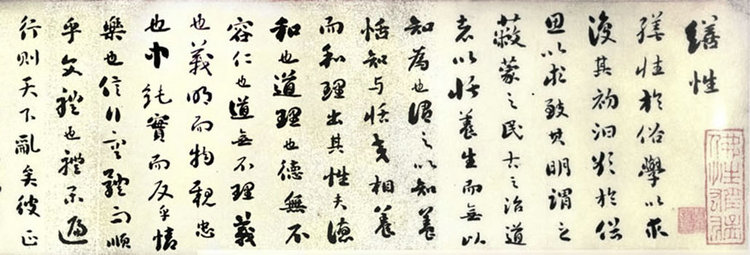 繕性
繕性於俗學以求
復其初汩欲於俗
思以求致其明謂之
蔽蒙之民古之治道
者以恬養生而無以
知為也謂之以知養
恬知与恬交相養
而和理出其性夫德
和也道理也德無不
容仁也道無不理義
也義明而物親忠
也中純實而反乎情
樂也信行容體而順
乎文禮也禮乐遍
行則天下亂矣彼正